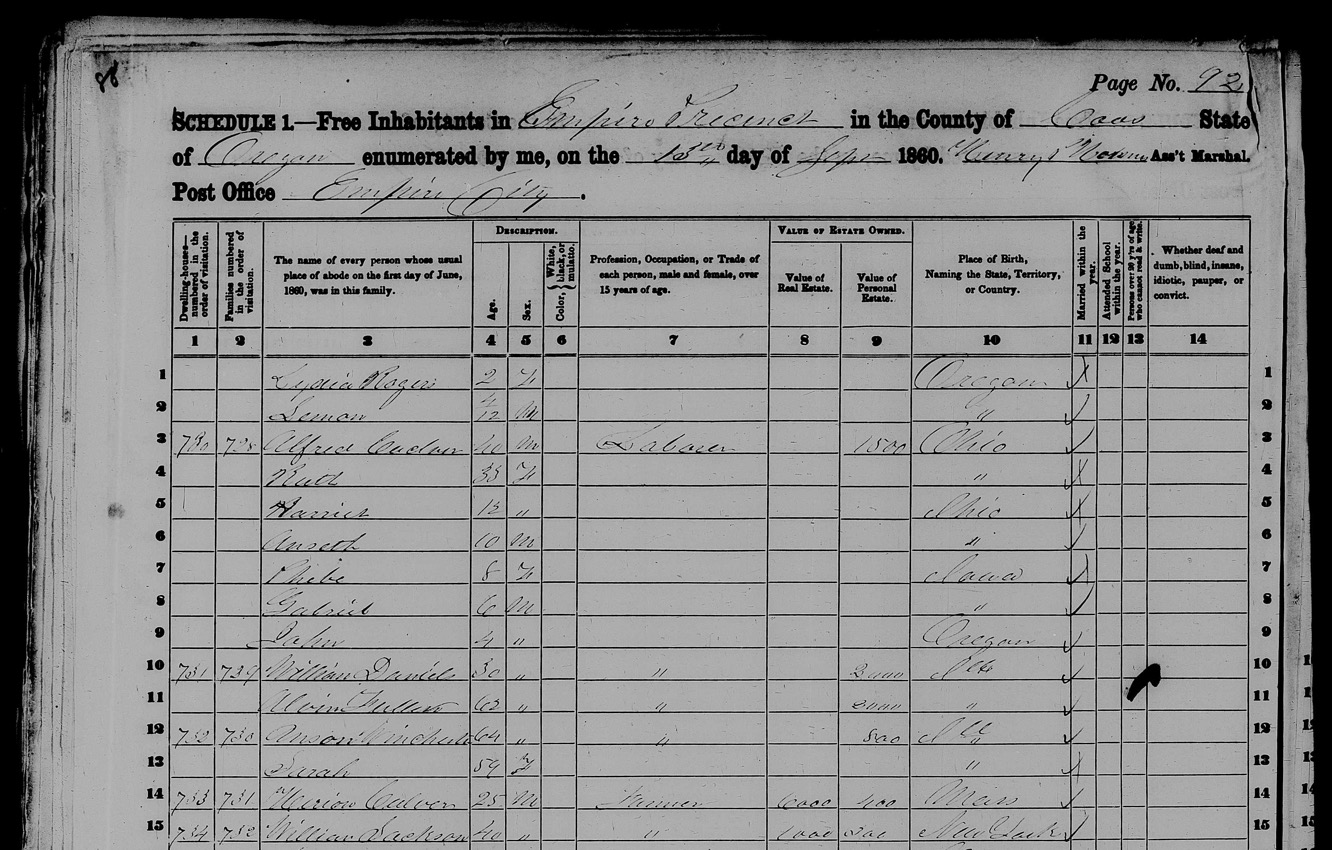 Page No. 92
SCHEDULE 1.—Free Inhabitants in Empire Precinct in the County of Coos State
of Oregon enumerated by me, on the 13th day of Sept 1860. Henry Ass't Marshal.
Post Office Empire City.
Dwelling-houses—numbered in the order of visitation. Families numbered in the order of visitation. The name of every person whose usual place of abode on the first day of June, 1860, was in this family. DESCRIPTION. Age. Sex. Color, { White, black, or mulatto. Profession, Occupation, or Trade of each person, male and female, over 15 years of age. VALUE OF ESTATE OWNED. Value of Real Estate. Value of Personal Estate. Place of Birth, Naming the State, Territory, or Country. Married within the year. Attended School within the year. Persons over 20 y'rs of age who cannot read & write. Whether deaf and dumb, blind, insane, idiotic, pauper, or convict.
1 2 3 4 5 6 7 8 9 10 11 12 13 14
1 Lydia Rogers 2 F Oregon 1
2 Leman 4/12 M " 2
3 Alfred 40 M Laborer 1500 Ohio 3
4 Ruth 33 F " 4
5 Harriet " Ohio 5
6 10 M " 6
7 Phebe 8 F Iowa 7
8 Gabriel 6 M " 8
9 John 4 " Oregon 9
10 731 William Daniels 30 " " Ills 10
11 Alvin 62 " " 2000 " 11
12 732 730 Anson 64 " " 800 Ill 12
13 Sarah 59 F " 13
14 733 731 Culver 25 M Farmer 400 Mass 14
15 734 732 William Jackson 40 " " New York 15